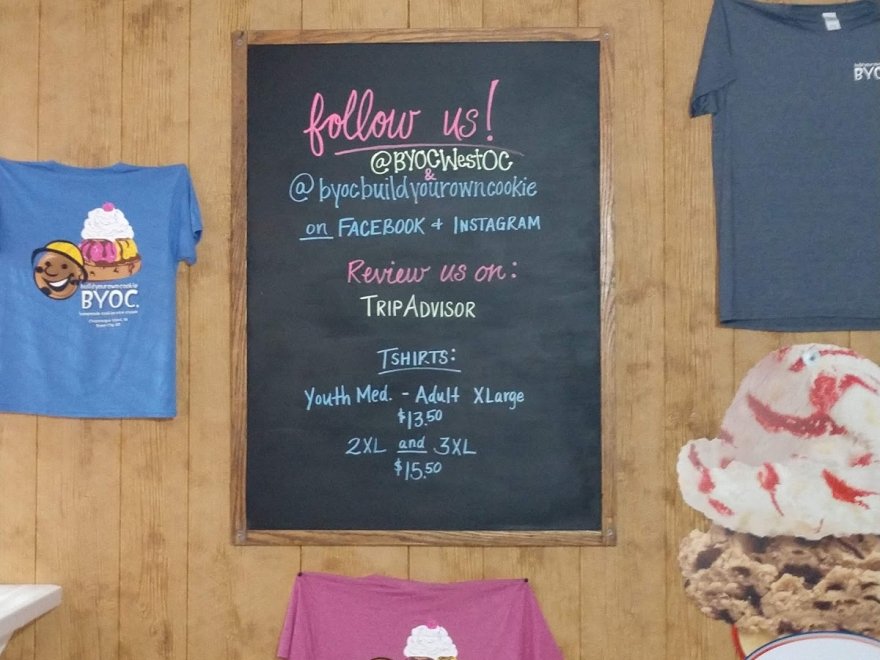 follow us!
@BYOCWestOC
&
@byocbuildyourowncookie
on FACEBOOK + INSTAGRAM
Review us on:
TRIPADVISOR
TSHIRTS:
Youth Med. - Adult XLarge
$13.50
2XL and 3XL
$15.50
buildyourowncookie
BYOC.
BYOC